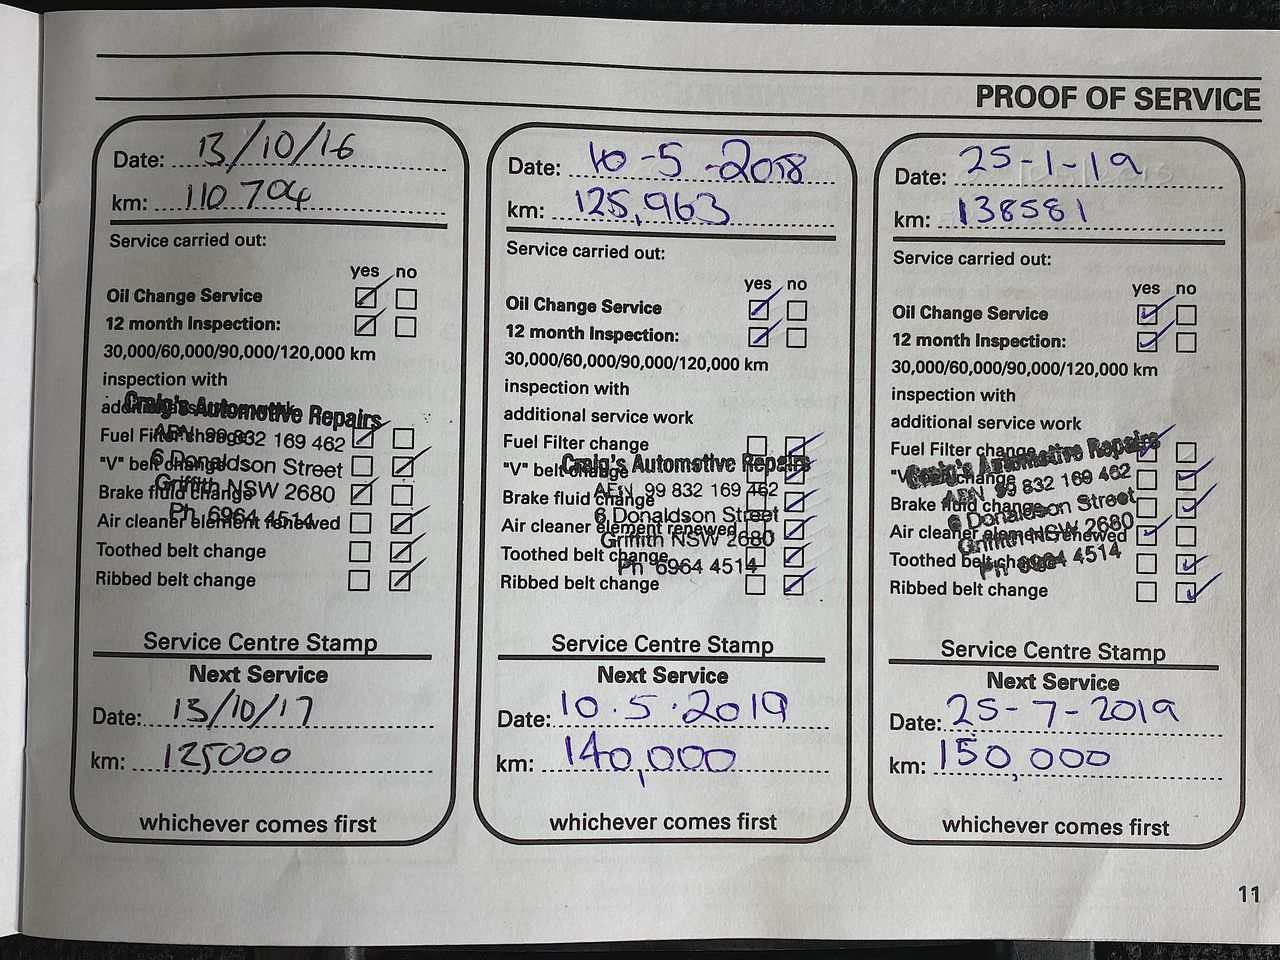 PROOF OF SERVICE
Date: 13/10/16
km: 110 704
Service carried out:
yes no
Oil Change Service
12 month Inspection:
30,000/60,000/90,000/120,000 km
inspection with
additional service work
Craig's Automotive Repairs
Fuel Filter change
ABN 99 832 169 462
"V" belt change
6 Donaldson Street
Brake fluid change
Griffith NSW 2680
Air cleaner element renewed
Ph 6964 4514
Toothed belt change
Ribbed belt change
Service Centre Stamp
Next Service
Date: 13/10/17
km: 125000
whichever comes first
Date: 10-5-2018
km: 125,963
Service carried out:
yes no
Oil Change Service
12 month Inspection:
30,000/60,000/90,000/120,000 km
inspection with
additional service work
Fuel Filter change
Craig's Automotive Repairs
"V" belt change
ABN 99 832 169 462
Brake fluid change
6 Donaldson Street
Air cleaner element renewed
Griffith NSW 2680
Toothed belt change
Ph 6964 4514
Ribbed belt change
Service Centre Stamp
Next Service
Date: 10.5.2019
km: 140,000
whichever comes first
Date: 25-1-19
km: 138581
Service carried out:
yes no
Oil Change Service
12 month Inspection:
30,000/60,000/90,000/120,000 km
inspection with
additional service work
Fuel Filter change
Craig's Automotive Repairs
"V" belt change
ABN 99 832 169 462
Brake fluid change
6 Donaldson Street
Air cleaner element renewed
Griffith NSW 2680
Toothed belt change
Ph 6964 4514
Ribbed belt change
Service Centre Stamp
Next Service
Date: 25-7-2019
km: 150,000
whichever comes first
11